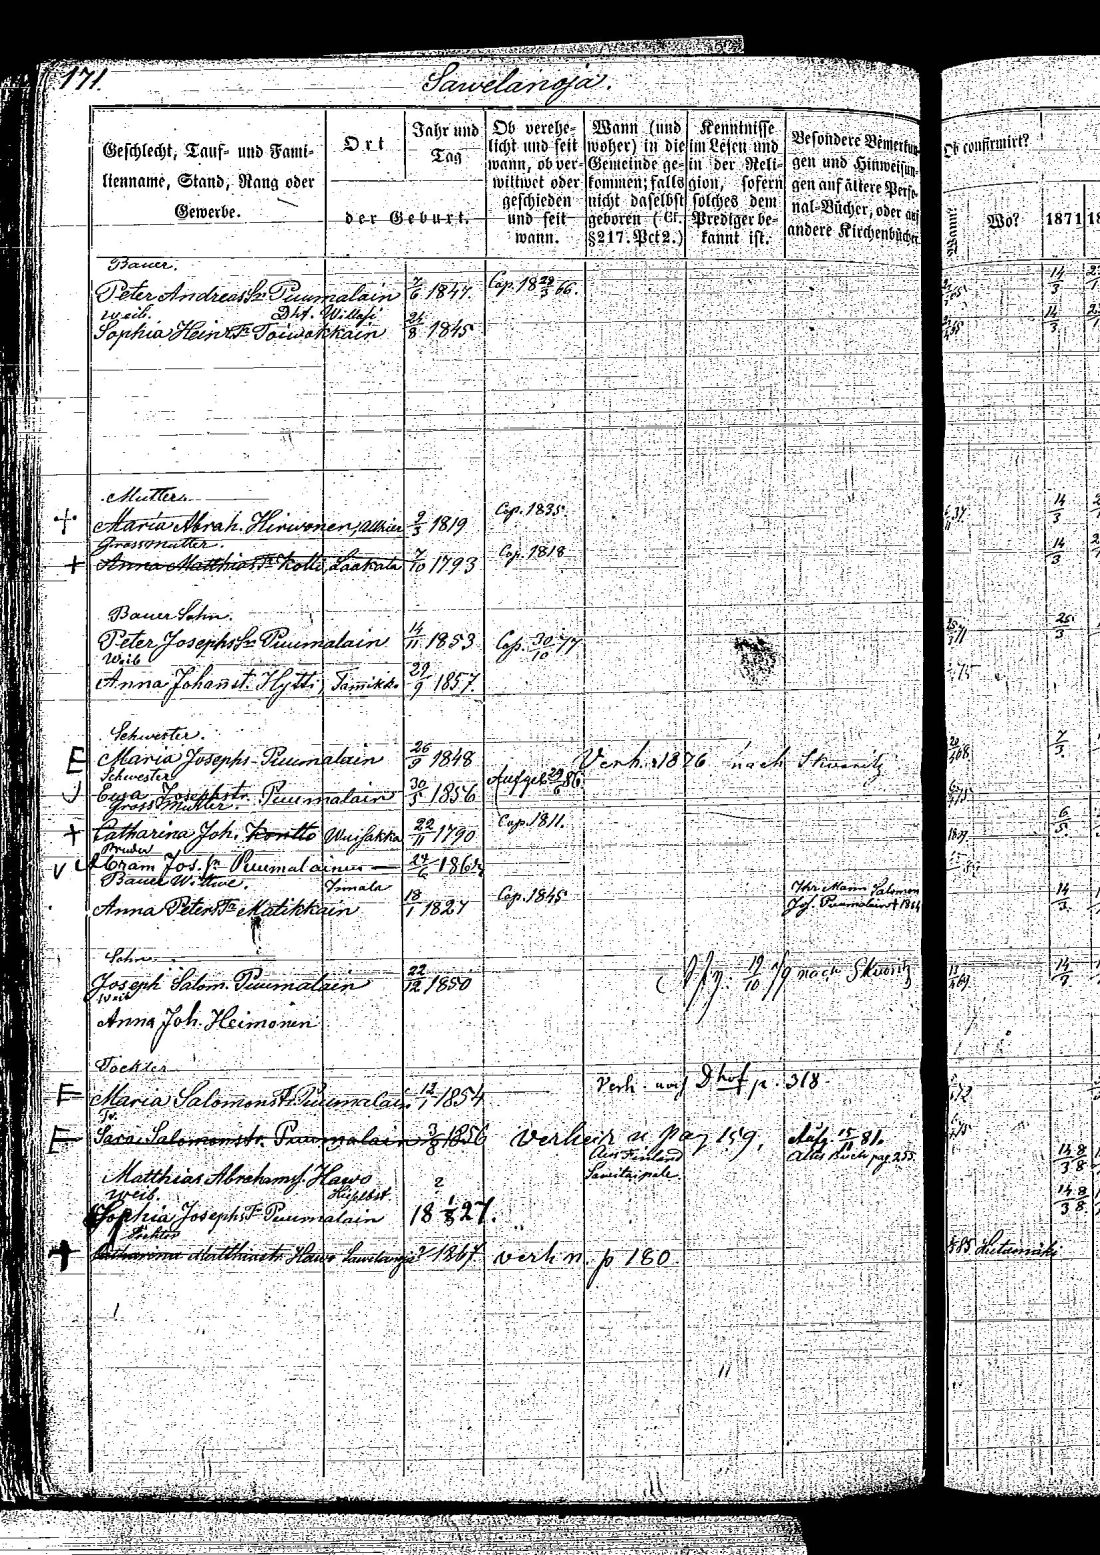 171.
Sawelanoja.
Geschlecht, Tauf- und Fami-
lienname, Stand, Rang oder
Gewerbe.
Ort
Jahr und
Tag
der Geburt.
Ob verehe-
licht und seit
wann, ob ver-
wittwet oder
geschieden
und seit
wann.
Wann (und
woher) in die
Gemeinde ge-
kommen; falls
nicht daselbst
geboren (Cf.
§217. Pct 2.)
Kenntnisse
im Lesen und
in der Reli-
gion, sofern
solches dem
Prediger be-
kannt ist.
Besondere Bemerkun-
gen und Hinweisun-
gen auf ältere Perso-
nal-Bücher, oder auf
andere Kirchenbücher
Ob confirmirt?
Wann?
Wo?
1871
Bauer.
Peter Andreas Sn Puumalain 7/6 1847. Cop. 18 29/3 66. 14/3
Weib. Dht. Willasi
Sophia Heinr. Tr. Toiwokkain 24/8 1845 14/3
Mutter.
+ Maria Abrah. Hirwonen, 9/3 1819 Cop. 1835. 37 14/3
Grossmutter.
+ Anna Matthias Tr. Kolli, Laakala 7/10 1793 Cop. 1818 14/3
Bauer Sohn.
Peter Josephs Sn Puumalain 14/11 1853 Cop. 30/10 77 25/3
Weib
Anna Johanst. Hytti, Tamikko 29/9 1857. 75
Schwester.
E Maria Josephs Puumalain 26/9 1848 Verh. 1876 nach Skworitz 7/3
Schwester
Ewa Josephstr. Puumalain 30/5 1856 Aufgeb 29/6 86
Gross Mutter.
+ Catharina Joh. Kontto Wuisakka 22/11 1790 Cop. 1811. 6/5
Bruder
Abram Jos. Sn Puumalainen 24/6 1861
Bauer Wittwe. Innala
Anna Peters Ta Matikkain 18/1 1827 Cop. 1845 Ihr Mann Salomon 14/3
Jos. Puumalain + 1864
Sohn
Joseph Salom. Puumalain 22/12 1850 19/10 79 nach Skworitz 14/3
Weib
Anna Joh. Heimonen
Tochter
E Maria Salomonst. Puumalain 12/1 1854 Verh. nach Dhof p. 318.
Tr.
E Sara Salomonstr. Puumalain 3/8 1856 verheir n. pag 159, Aufg. 15/11 81.
Aus Finland Altes Buch pag 255. 14/3 8/8
Sawitaipale
Matthias Abrahams. Hawo ?
Weib. Hüselbst.
Sophia Josephs Tr Puumalain 18 1/8 27. 14/3 8/8
Tochter
+ Catharina Matthiastr. Hawo Sawelanoja ? 1847. verh n. p 180. Lutumäki